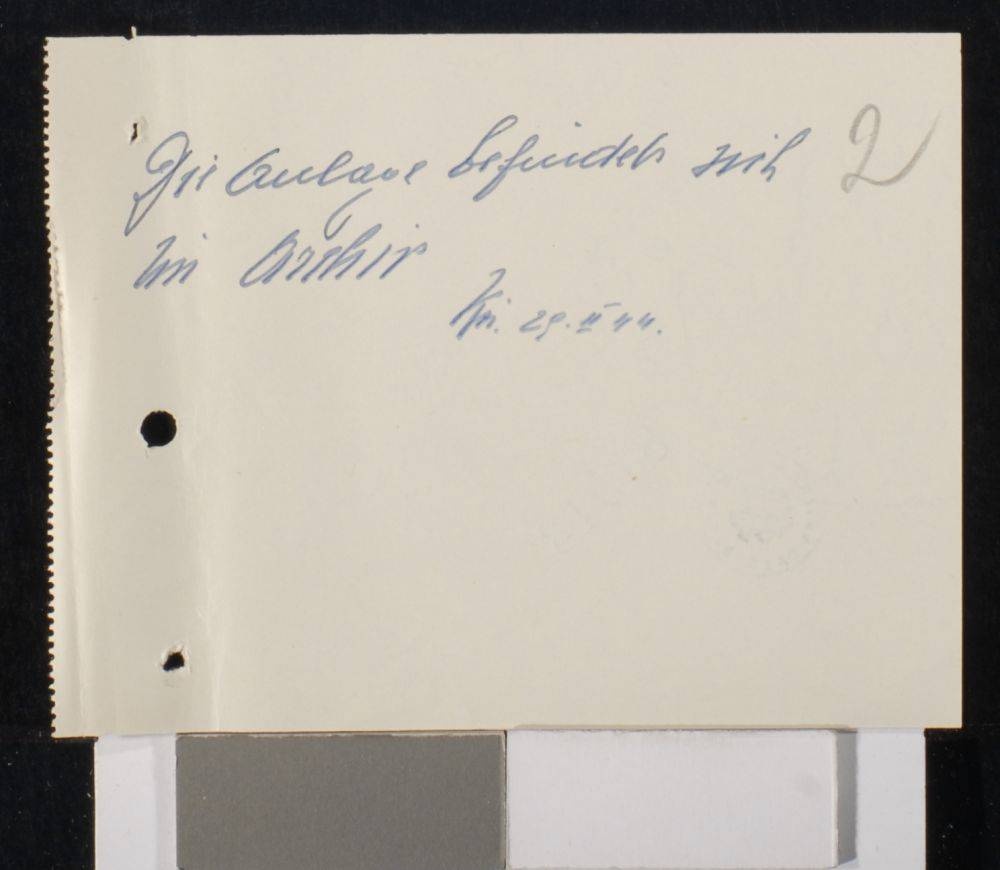 Die Anlage befindet sich
im Archiv
2
Kri. 29. II 44.